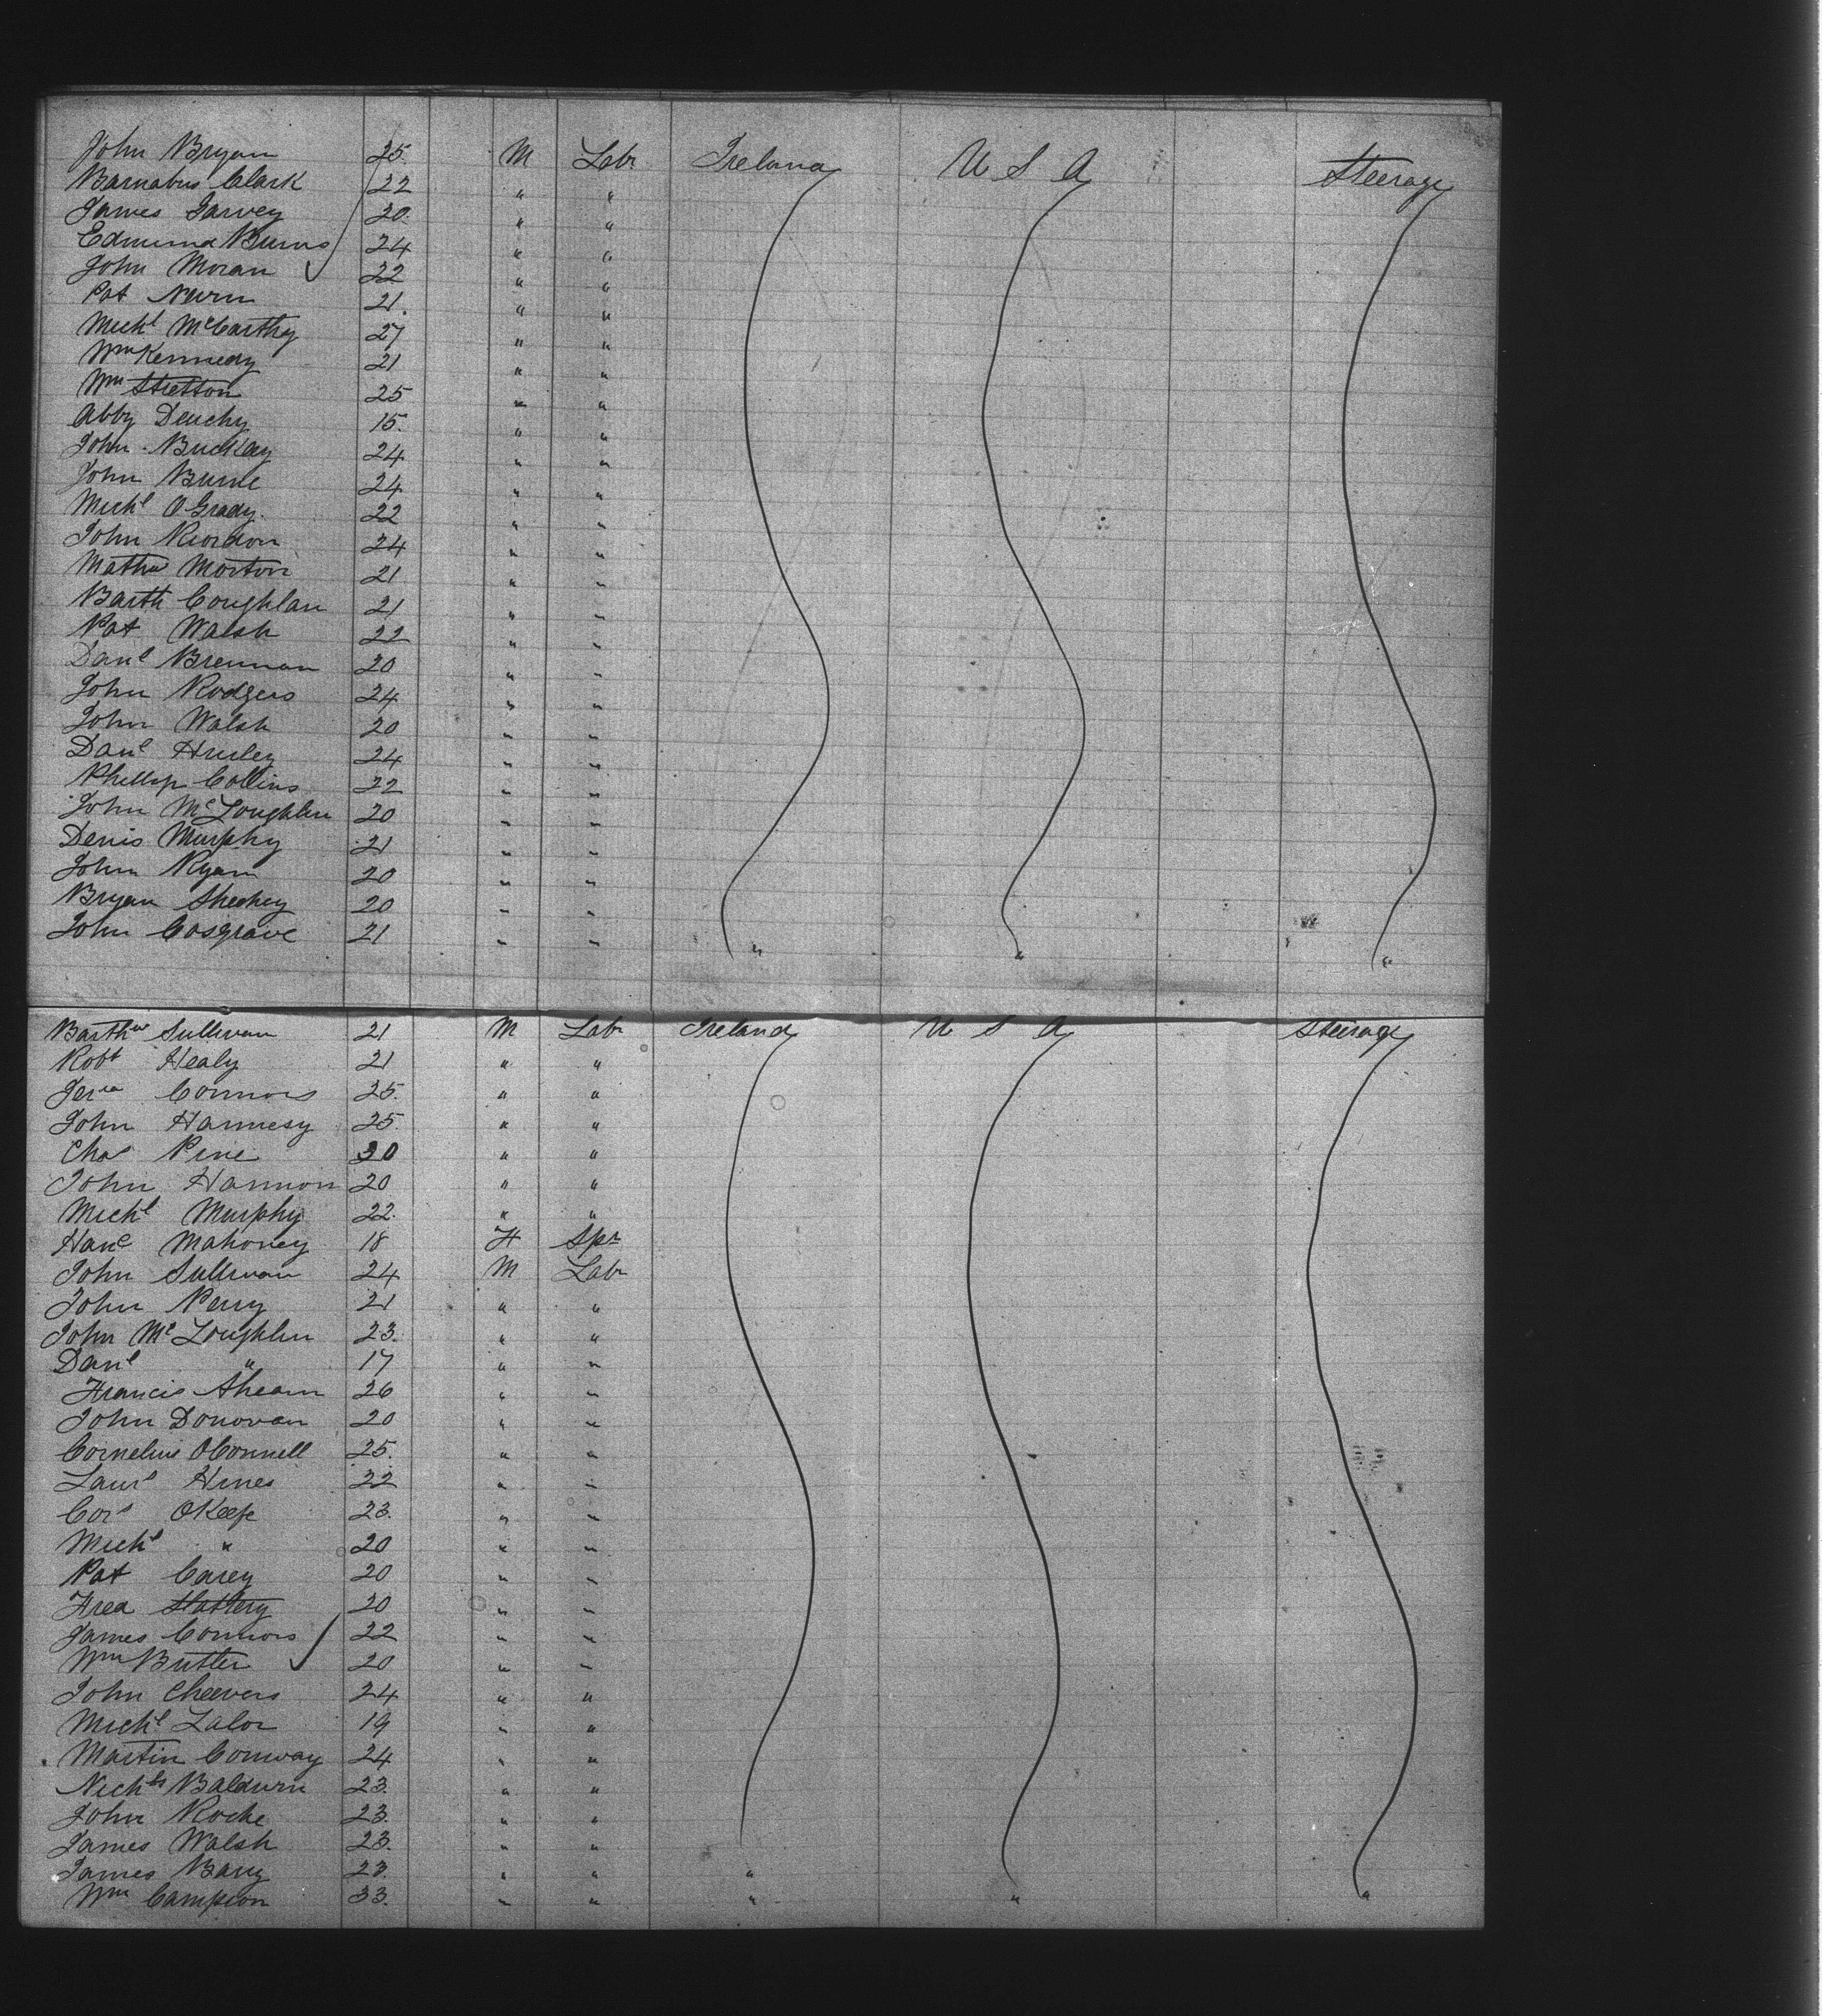 John Bryan 25. M Labr Ireland U S A Steerage
Barnabus Clark 22 " "
James Garvey 20. " "
Edmund Burns 24 " "
John Moran 22 " "
Pat Nevin 21. " "
Michl McCarthy 27 " "
Wm Kennedy 21 " "
Wm Stretton 25 " "
Abby Deuchy 15. " "
John Buckley 24 " "
John Burke 24 " "
Michl O'Grady. 22 " "
John Riordon 24 " "
Mathw Morton 21 " "
Barth Coughlan 21 " "
Pat Walsh 22 " "
Danl Brennan 20 " "
John Rodgers 24 " "
John Walsh 20 " "
Danl Hurley 24 " "
Phillip Collins 22 " "
John McLoughlin 20 " "
Denis Murphy 21 " "
John Ryan 20 " "
Bryan Sheehy 20 " "
John Cosgrave 21 " " " " "
Barthw Sullivan 21 M Labr Ireland U S A Steerage
Robt Healy 21 " "
Jera Connors 25. " "
John Hannesy 25. " "
Chas Pine 30 " "
John Hannon 20 " "
Michl Murphy 22. " "
Hane Mahoney 18 F Spr
John Sullivan 24 M Labr
John Perry 21 " "
John McLoughlin 23. " "
Danl " 17 " "
Francis Ahearn 26 " "
John Donovan 20 " "
Cornelius OConnell 25. " "
Laurc Hines 22 " "
Cors OKeefe 23. " "
Michl " 20 " "
Pat Carey 20 " "
Fred Slattery 20 " "
James Connors 22 " "
Wm Butler 20 " "
John Cheevers 24 " "
Michl Lalor 19 " "
Martin Conway 24 " "
Nichls Baldwin 23. " "
John Roche 23. " "
James Walsh 23. " "
James Barry 23. " " "
Wm Campion 33. " " " " "